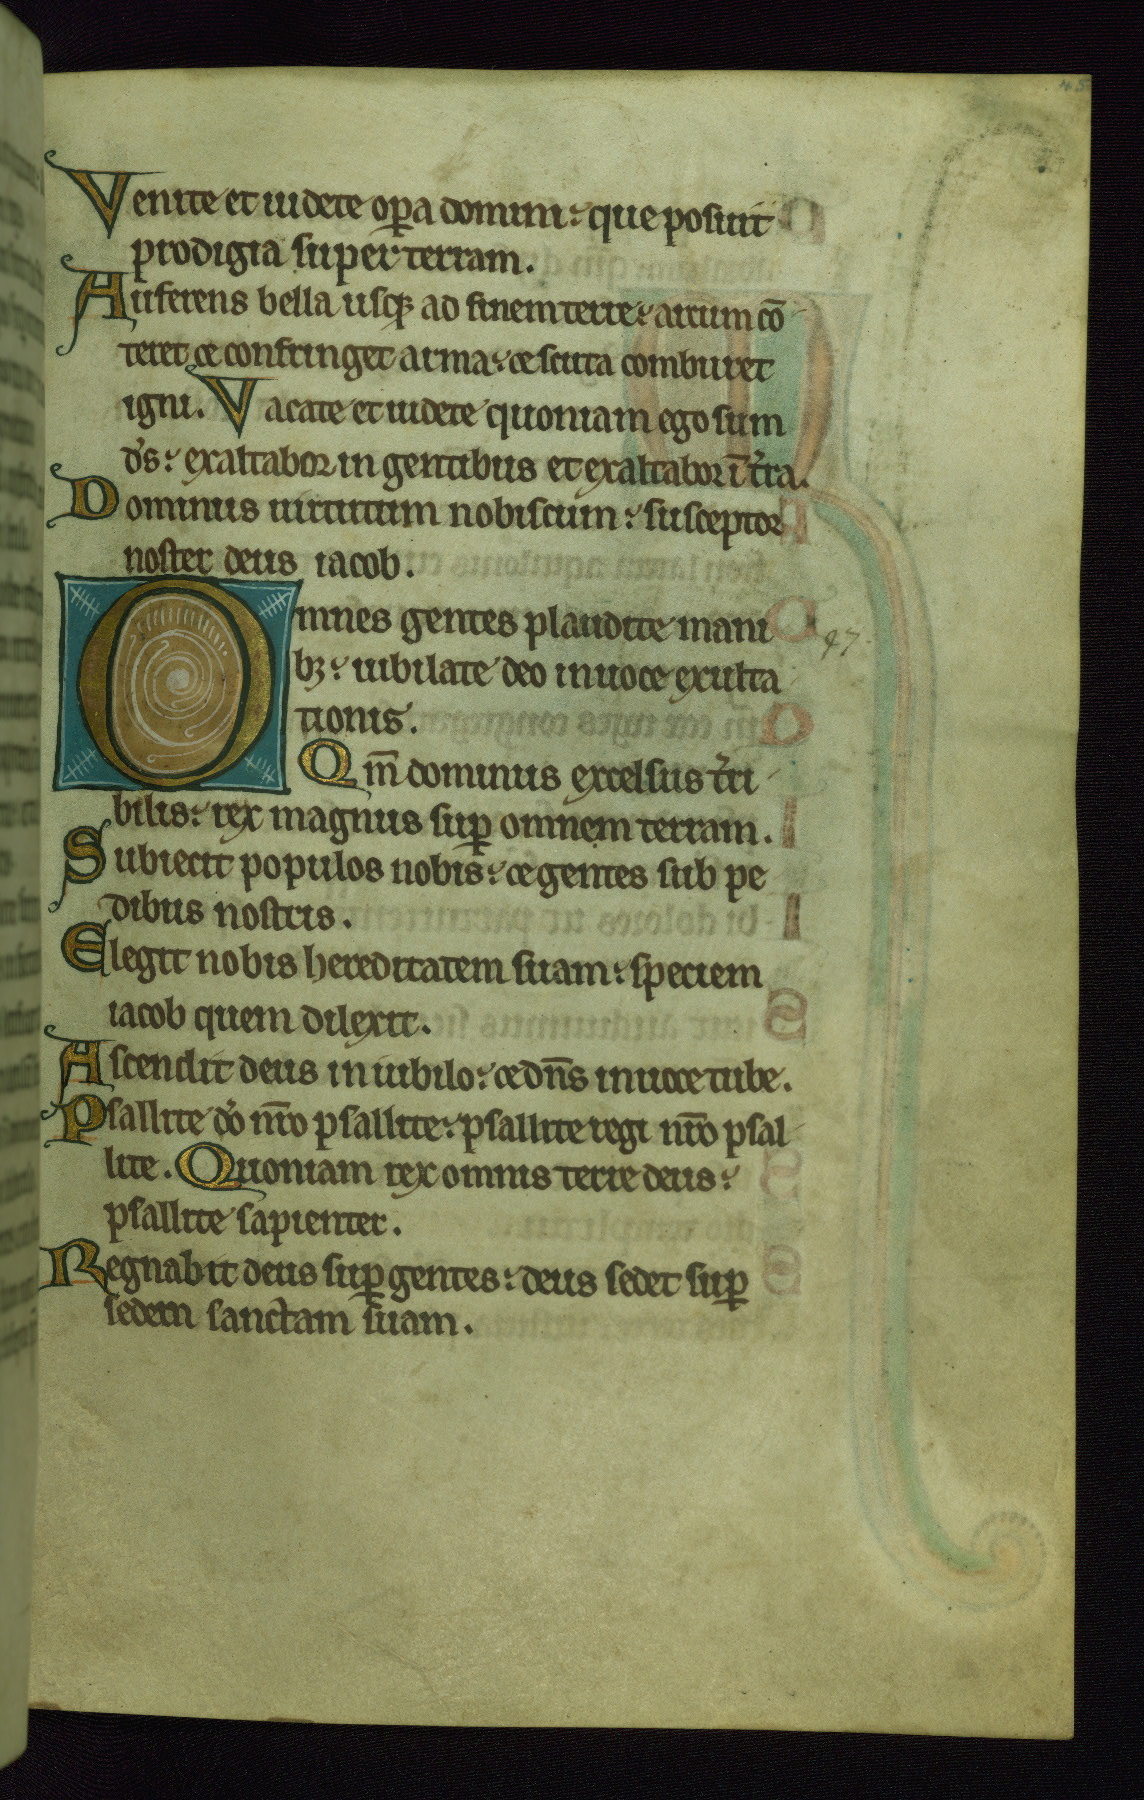 45
Venite et uidete op̲a domini: que posuit
prodigia super terram.
Auferens bella usq; ad finem terre: arcum cō
teret ce confringet arma: ce scuta comburet
igni. Vacate et uidete quoniam ego sum
d's: exaltabor in gentibus et exaltabor ī t'ra.
Dominus uirtutum nobiscum: susceptor
noster deus iacob.
Omnes gentes plaudite mani
bʒ: iubilate deo in uoce exulta
tionis.
Qm̄ dominus excelsus t'ri
bilis: rex magnus sup̲ omnem terram.
Subiecit populos nobis: ce gentes sub pe
dibus nostris.
Elegit nobis hereditatem suam: speciem
iacob quem dilexit.
Ascendit deus in iubilo: ce dn̄s in uoce tube.
Psallite d'o nr̄o psallite: psallite regi nr̄o psal
lite. Quoniam rex omnis terre deus:
psallite sapienter.
Regnabit deus sup̲ gentes: deus sedet sup̲
sedem sanctam suam.
47.